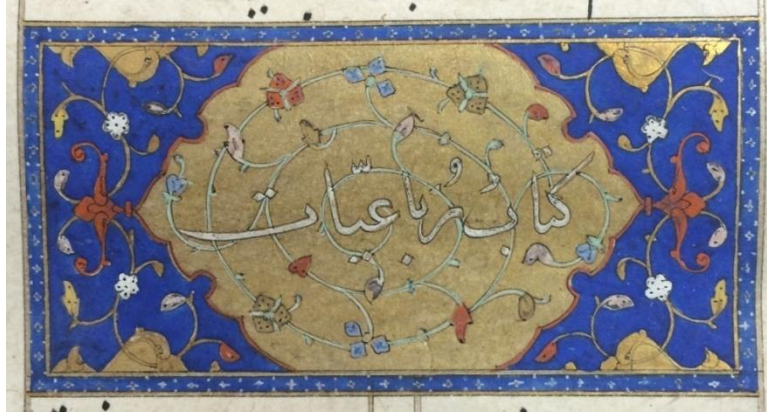 كتاب رباعیات